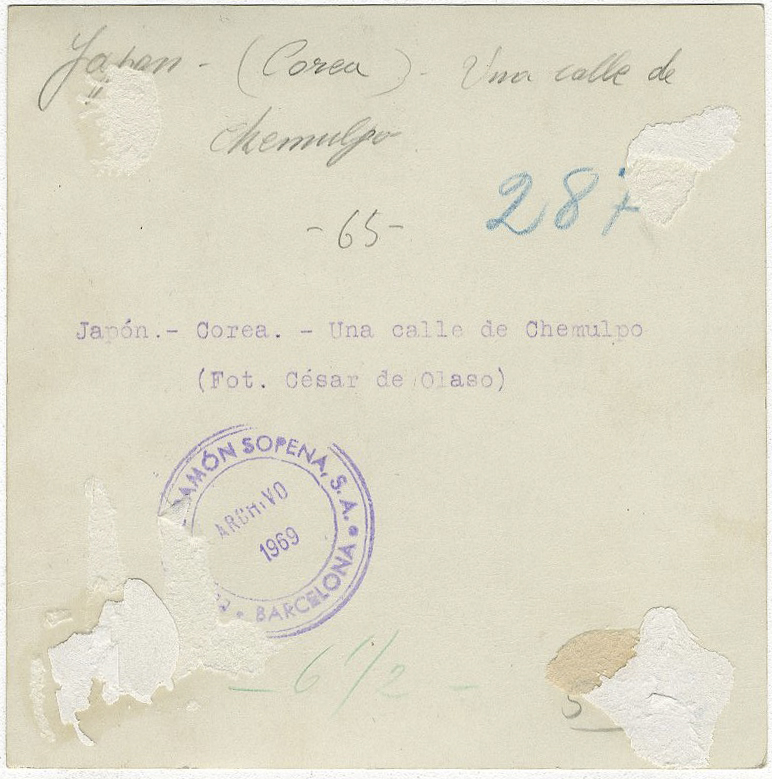 Japon - (Corea) - Una calle de
Chemulpo
287
-65-
Japón.- Corea. - Una calle de Chemulpo
(Fot. César de Olaso)
RAMÓN SOPENA, S.A. • BARCELONA •
ARCHIVO
1969
- 6 1/2 -
5